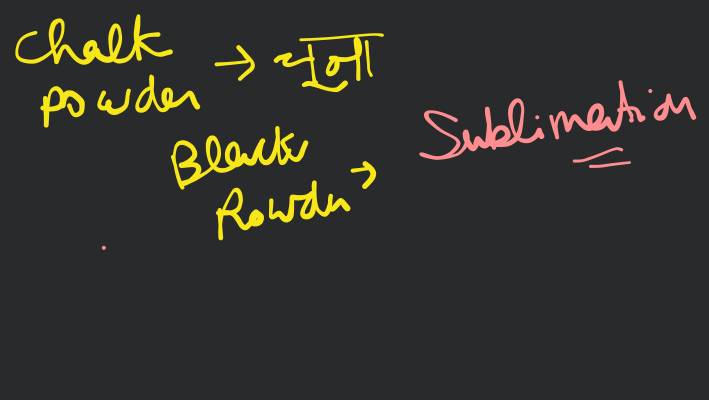 Chalk
powder → चूना
Black
Powder →
Sublimation